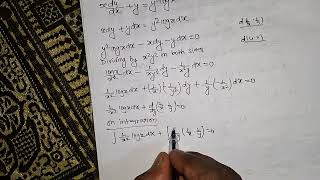 x dy/dx + y = y² log x
xdy + ydx = y² log x dx
d(1/x · 1/y)
y² log x dx - xdy - ydx = 0
d(u·v)
Dividing by x²y² in both sides
log x/x² dx - 1/xy² dy - 1/x²y dx = 0
1/x² log x dx + (1/x)(-1/y²) dy + 1/y (-1/x²) dx = 0
1/x² log x dx + d(1/x · 1/y) = 0
on integration
∫ 1/x² log x dx + ∫ (1/x · 1/y) = 0